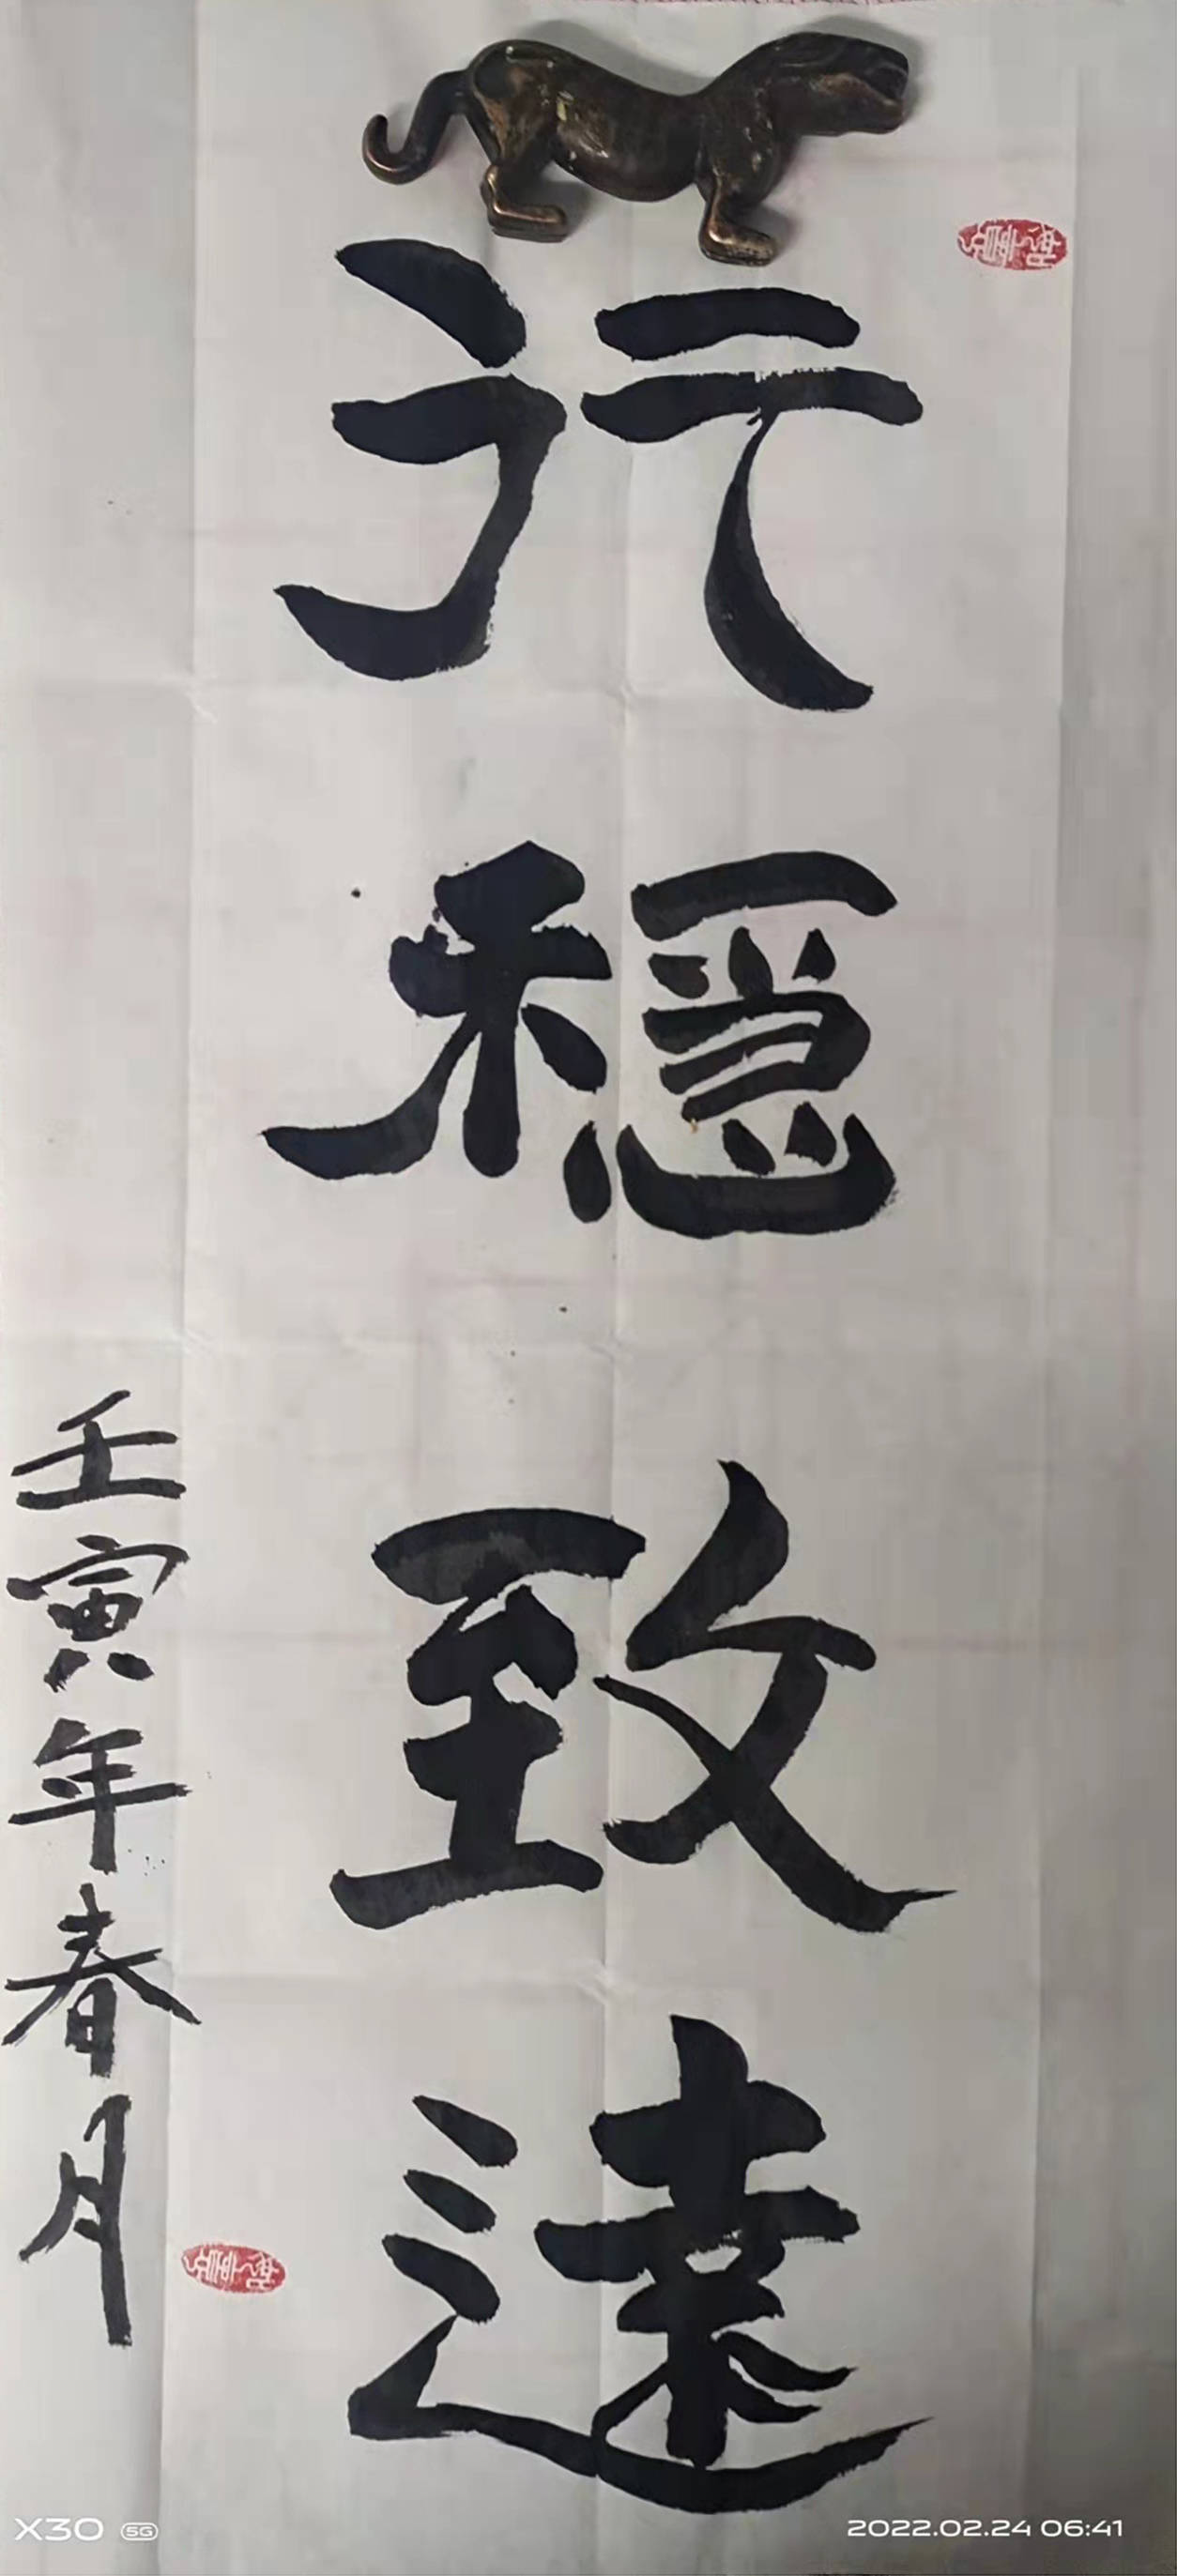 行穩致遠
壬寅年春月
X30 5G
2022.02.24 06:41